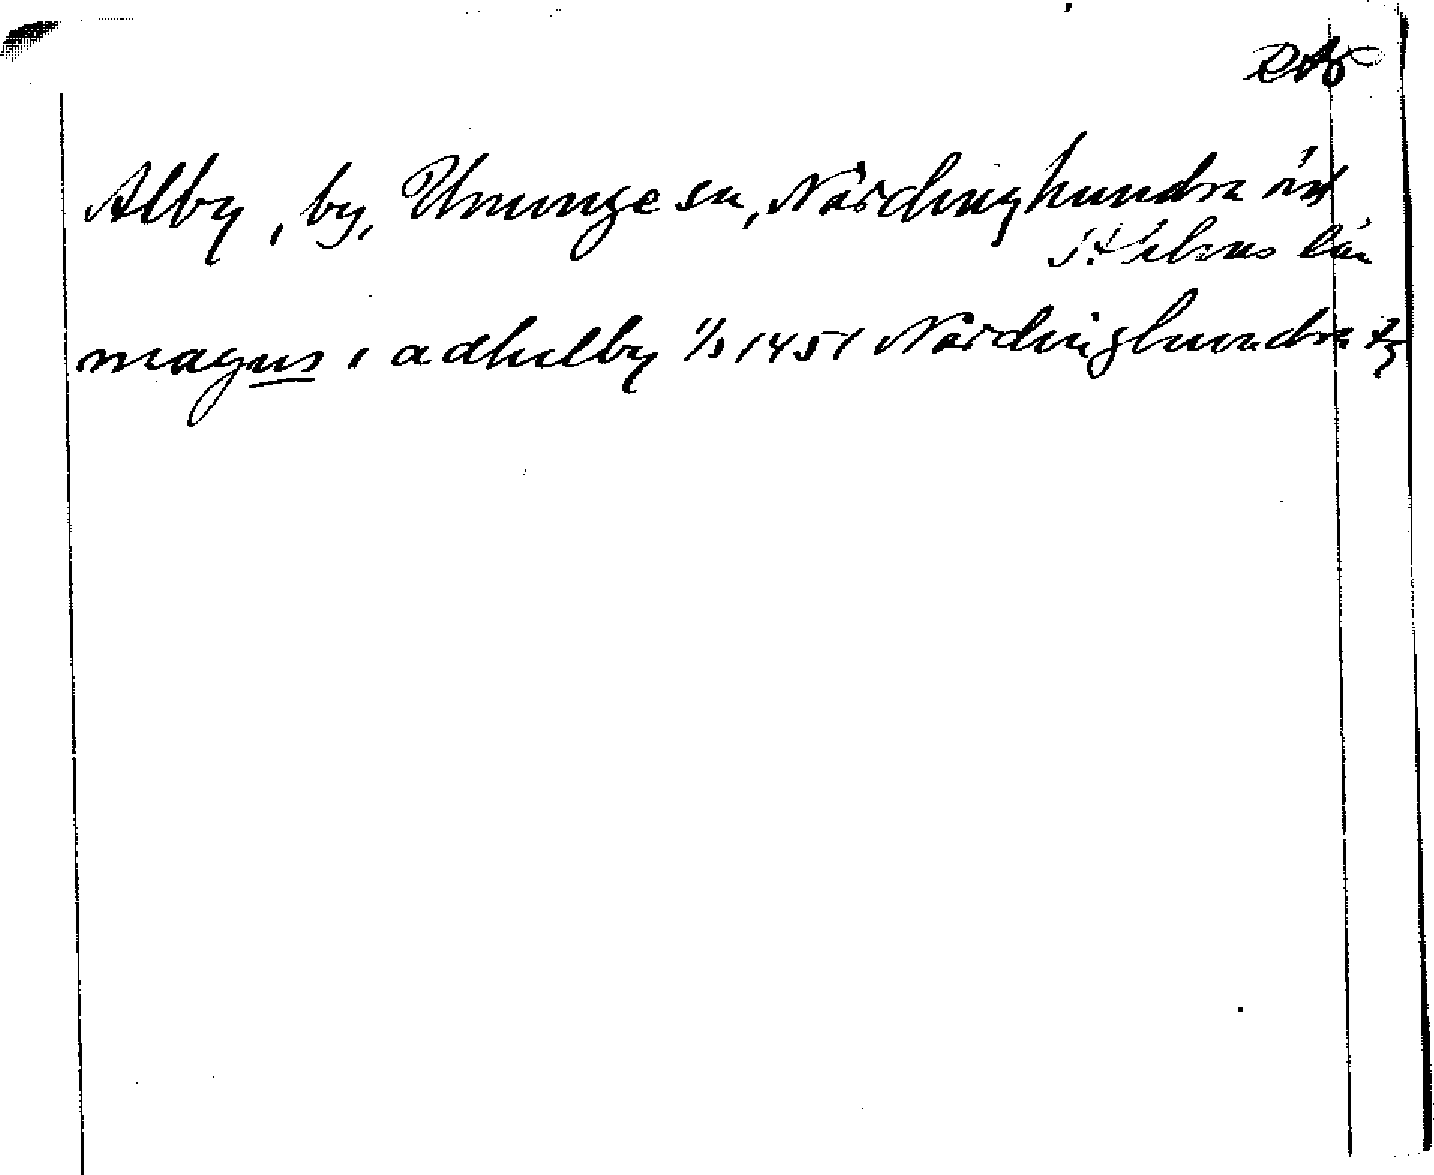 Alby, by, Ununge sn, Närdinghundra
St'holms län
magnus i adhelby 1/3 1451 Närdinghundra